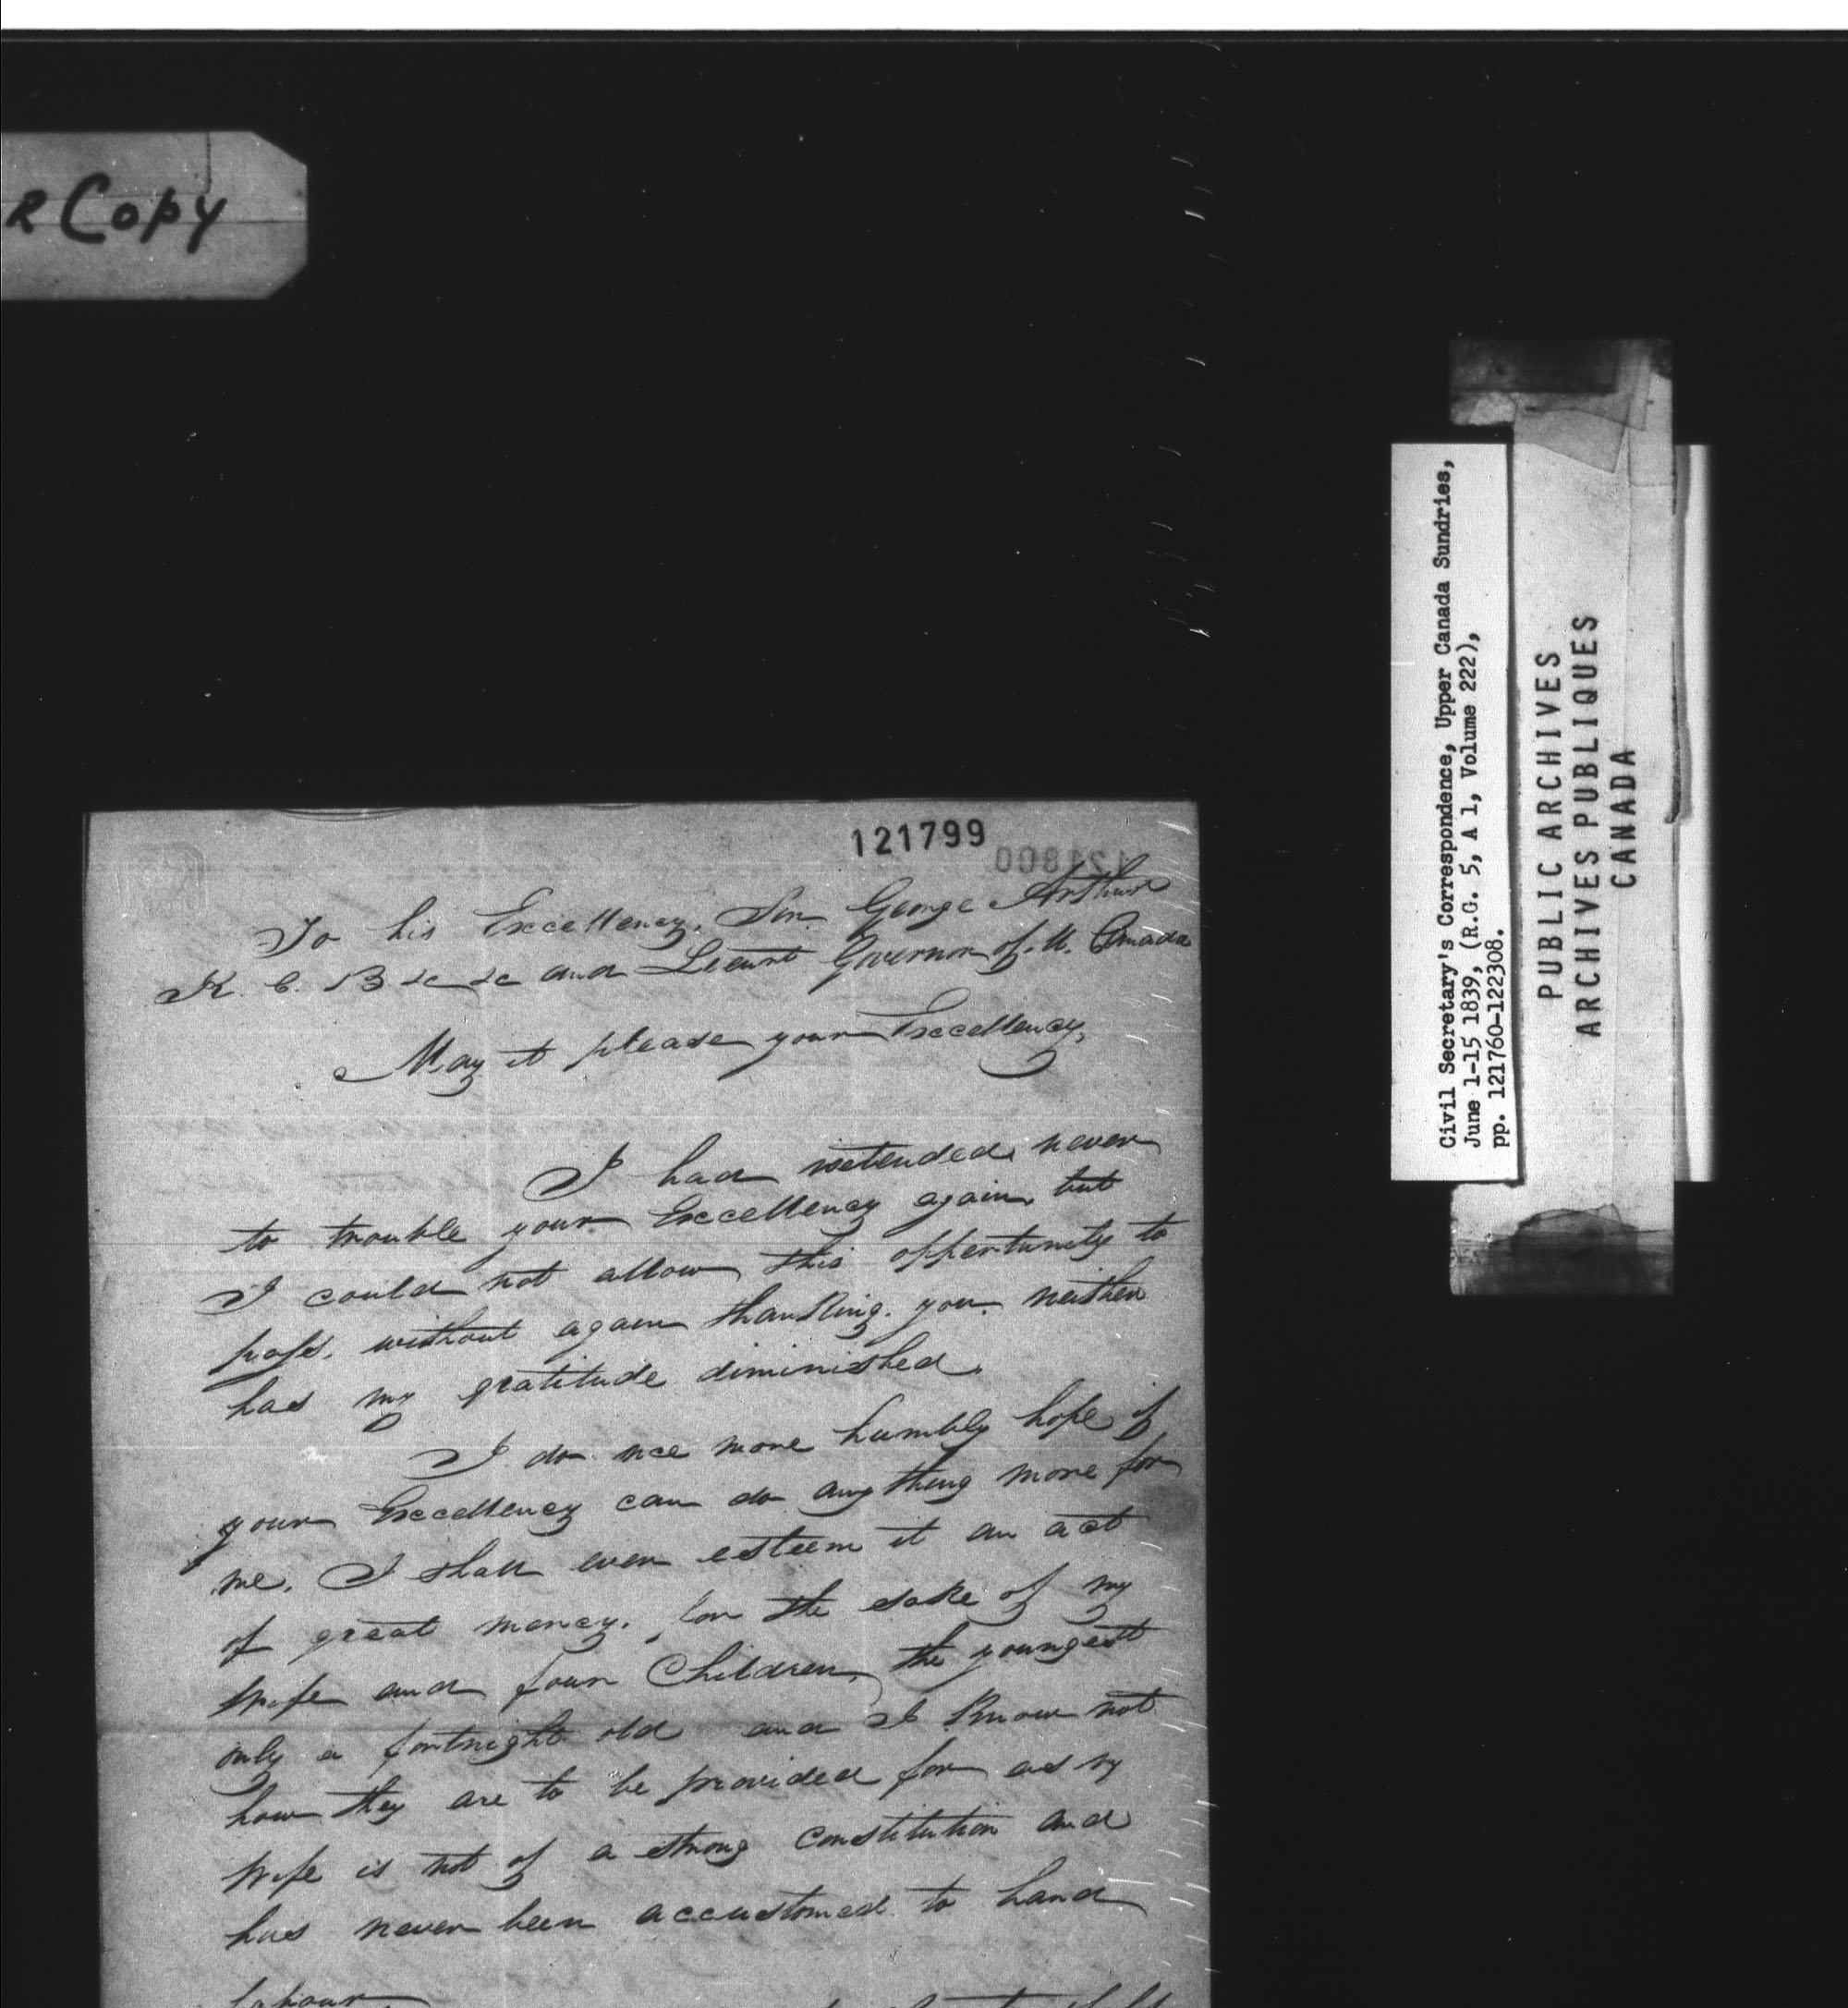 R Copy
121799
121800
To his Excellency. Sir George Arthur
K. C. B &c &c and Lieunt Governor of U. Canada
May it please your Excellency,
I had intended never
to trouble your Excellency again, but
I could not allow this oppertunity to
pass. without again thanking. you. neither
has my gratitude diminished.
I do nce more humbly hope if
your Excellency can do any thing more for
me. I shall ever esteem it an act
of great mercy. for the sake of my
wife and four Children, the youngest
only a fortnight old and I know not
how they are to be provided for as my
wife is not of a strong constitution and
has never been accustomed to hard
labour
Civil Secretary's Correspondence, Upper Canada Sundries,
June 1-15 1839, (R.G. 5, A 1, Volume 222),
pp. 121760-122308.
PUBLIC ARCHIVES
ARCHIVES PUBLIQUES
CANADA